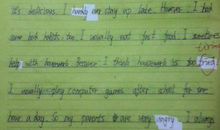 It's delicious. I hardly ever stay up late. However, I had
some bad habits too. I usually eat fast food. I sometimes
help with housework because I think housework is too tired
I usually play computer games after school for one
hour a day. So my parents are very angry. I always